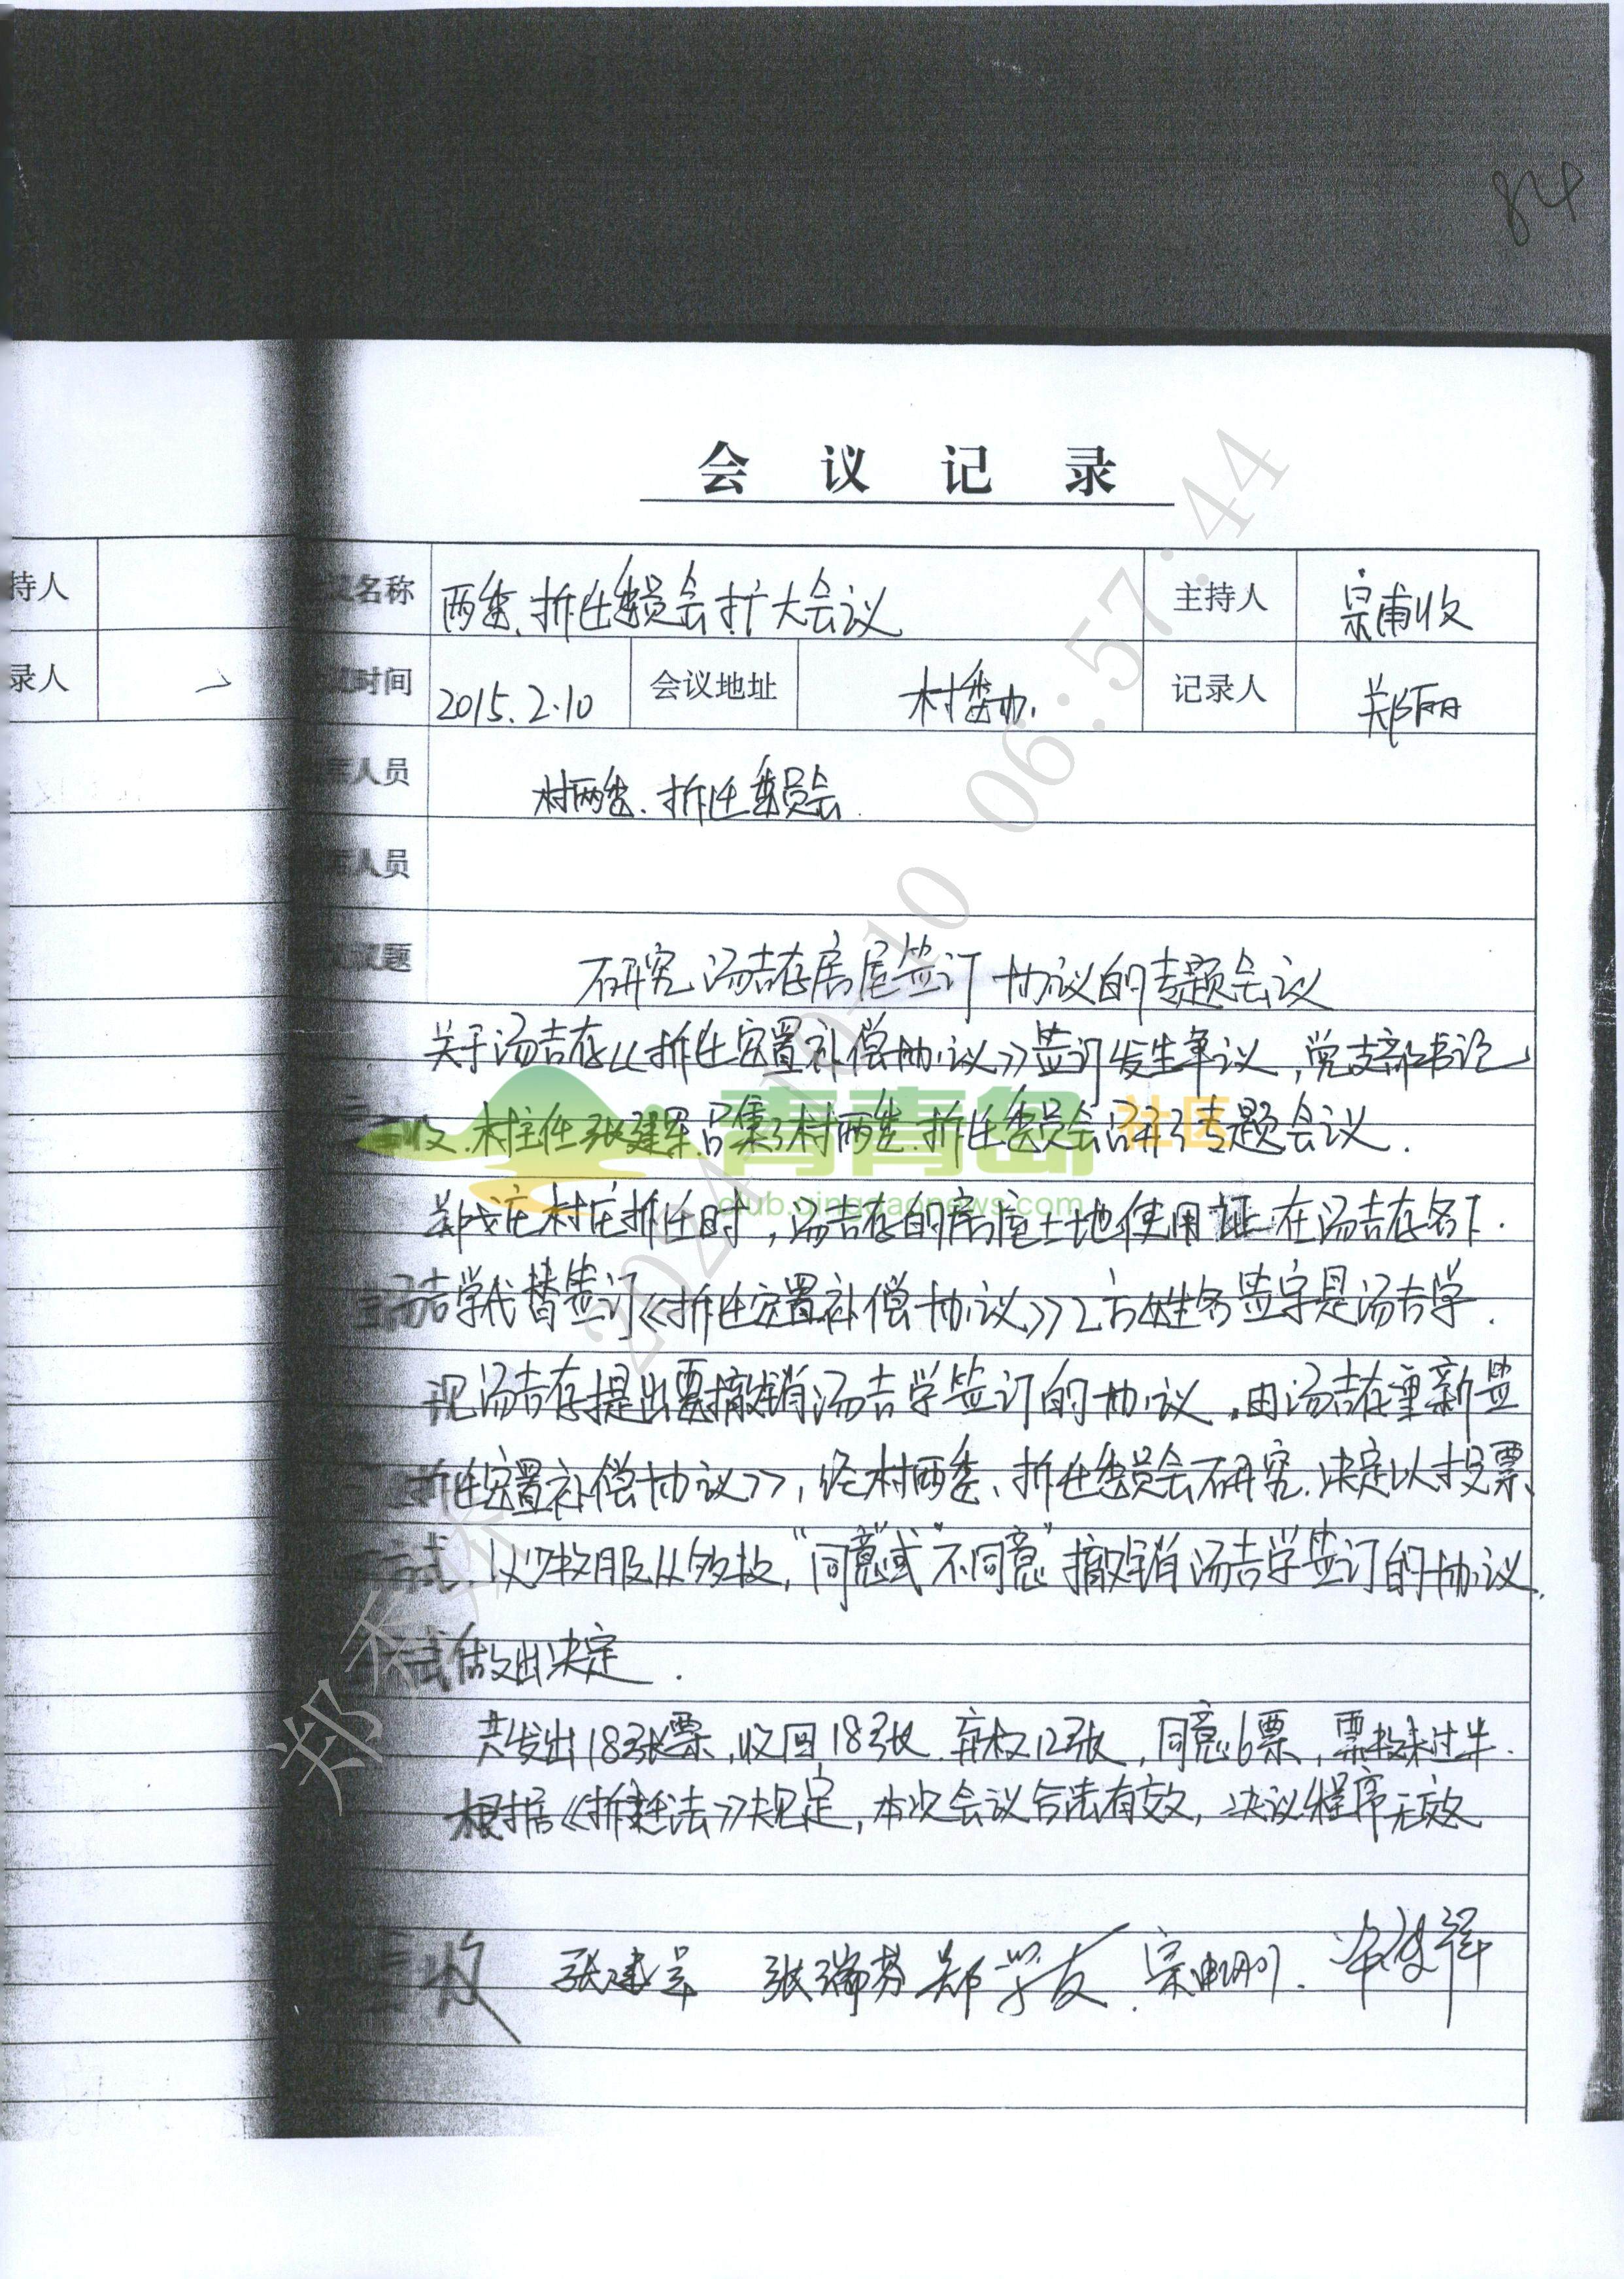 84
会议记录
持人
议名称
两委、拆迁委员会扩大会议
主持人
宗甫收
录人
时间
2015.2.10
会议地址
村委办.
记录人
郑丽
席人员
村两委、拆迁委员会.
席人员
议题
研究汤吉存房屋签订协议的专题会议
关于汤吉存《拆迁安置补偿协议》签订发生争议,党支部书记
收、村主任张建军召集了村两委、拆迁委员会召开了专题会议.
郑戈庄村庄拆迁时,汤吉存的房屋土地使用证在汤吉存名下.
汤吉学代替签订《拆迁安置补偿协议》乙方姓名签字是汤吉学.
现汤吉存提出要撤销汤吉学签订的协议,由汤吉存重新签
拆迁安置补偿协议》,经村两委、拆迁委员会研究.决定以投票
方式.以少数服从多数,“同意”或“不同意”撤销汤吉学签订的协议.
式做出决定.
共发出18张票,收回18张.弃权12张,同意6票,票数未过半.
根据《拆迁法》规定,本次会议合法有效,决议程序无效
收 张建军 张瑞芬 郑学友.宗
青青岛 社区
club.qingdaonews.com
2024-10-10 06:57:44